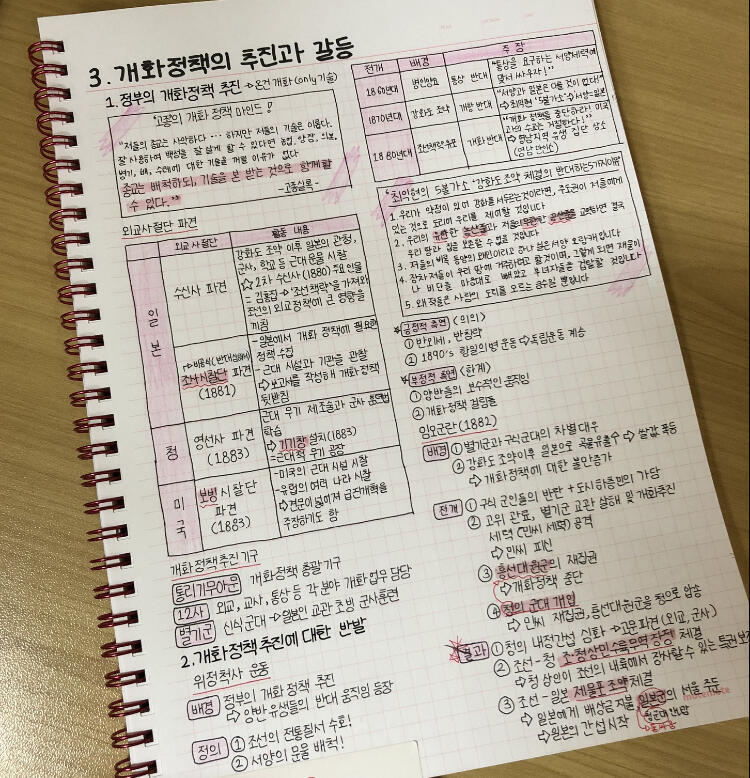 3. 개화정책의 추진과 갈등
1. 정부의 개화정책 추진 → 온건개화(only기술)
"고종의 개화 정책 마인드"
"저들의 종교는 사악하다 … 하지만 저들의 기술은 이롭다.
잘 사용하여 백성들 잘 살게 할 수 있다면 농업, 양잠, 의복,
병기, 배, 수레에 대한 기술을 꺼릴 이유가 없다
종교는 배척하되, 기술을 본 받는 것으로 함께할
수 있다."
-고종실록-
외교사절단 파견
외교 사절단 활동 내용
일본
수신사 파견
강화도 조약 이후 일본의 관청,
군사, 학교 등 근대 문물 시찰
☆2차 수신사 (1880) 주요인물
= 김홍집 → '조선책략'을 가져와
조선의 외교정책에 큰 영향을
끼침
→비공식(반대심해서)
조사시찰단 파견
(1881)
-일본에서 개화 정책에 필요한
정책 수집
- 근대 시설과 기관을 관찰
⇨ 보고서를 작성해 개화 정책
뒷받침
청
영선사 파견
(1883)
근대 무기 제조술과 군사 훈련법
학습
⇨ 기기창 설치(1883)
=근대적 무기 공장
미국
보빙 시절단
파견
(1883)
-미국의 근대 시설 시찰
-유럽의 여러 나라 시찰
⇨견문이 넓어져 급진개혁을
주장하기도 함
개화 정책 추진 기구
통리기무아문 개화정책 총괄 기구
12사 외교, 교사, 통상 등 각 분야 개화 업무 담당
별기군 신식 군대 → 일본인 교관 초빙 군사훈련
2. 개화정책 추진에 대한 반발
위정척사 운동
배경 정부의 개화 정책 추진
⇨ 양반 유생들의 반대 움직임 등장
정의 ① 조선의 전통질서 수호!
② 서양의 문물 배척!
전개 배경 주장
1860년대 병인양요 통상 반대 "통상을 요구하는 서양세력에
맞서 싸우자!"
1870년대 강화도 조약 개항 반대 "서양과 일본은 다를 것이 없다!"
⇨최익현 '5불가소' → 서양=일본
1880년대 조선책략 유포 개화 반대 "개화 정책을 중단하라! 미국
과의 수교는 거절한다!"
⇨영남지역 유생 집단 상소
(영남만인소)
"최익현의 5불가소 '강화도조약 체결의 반대하는 5가지이유'
1. 우리가 약점이 있어 강화를 서두르는 것이라면, 주도권이 저들에게
있는 것으로 도리어 우리를 제어할 것입니다
2. 우리의 유한한 농산물과 저들의 무한한 공산품을 교환하면 결국
우리 땅과 집을 보호할 수 없을 것입니다
3. 저들의 비록 동양의 왜인이라고 하나 실은 서양 오랑캐입니다
4. 장차 저들이 우리 땅에 거주하려고 할 것이며, 그렇게 되면 재물이
나 비단을 마음대로 빼앗고 부녀자들을 겁탈할 것입니다
5. 왜 적들은 사람의 도리를 모르는 금수일 뿐입니다
긍정적 측면 (의의)
① 반외세, 반침략
② 1890's 항일의병 운동 ⇨ 독립운동 계승
부정적 측면 (한계)
① 양반들의 보수적인 움직임
② 개화정책 걸림돌
임오군란(1882)
배경 ① 별기군과 구식군대의 차별 대우
② 강화도 조약이후 일본으로 곡물유출수 ⇨ 쌀값 폭등
⇨ 개화정책에 대한 불만증가
전개 ① 구식 군인들의 반란 + 도시하층민의 가담
② 고위 관료, 별기군 교관 살해 및 개화추진
세력 (민씨 세력) 공격
⇨ 민씨 피신
③ 흥선대원군의 재집권
⇨개화정책 중단
④ 청의 군대 개입
⇨ 민씨 재집권, 흥선대원군을 청으로 압송
결과 ① 청의 내정간섭 심화 → 고문 파견 (외교, 군사)
② 조선-청 조청상민수륙무역장정 체결
⇨ 청 상인이 조선의 내륙에서 장사할 수 있는 특권 보장
③ 조선-일본 제물포 조약 체결
⇨ 일본에게 배상금 지불, 일본군의 서울 주둔
⇨일본의 간섭 시작